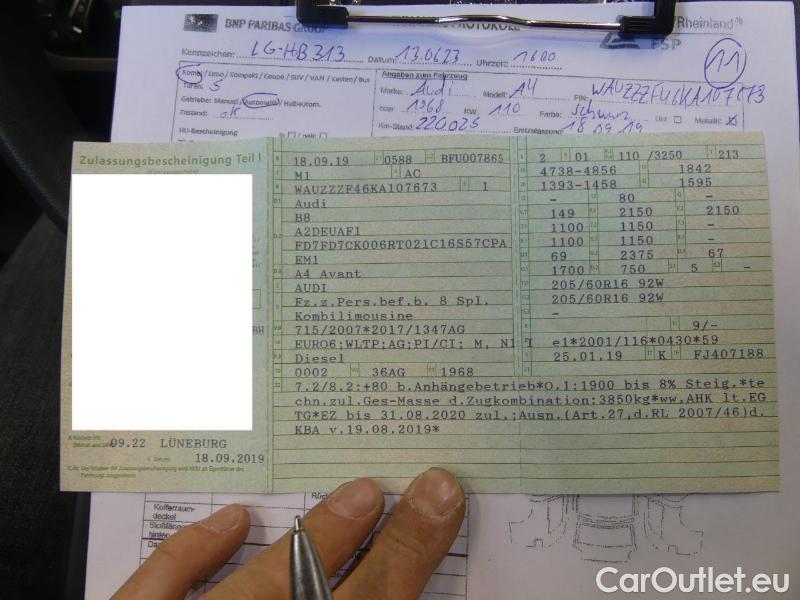 BNP PARIBAS GROUP PROTOKOLL /Rheinland®
FSP
Kennzeichen: LG-HB 313 Datum: 13.06.23 Uhrzeit: 1600
11
Kombi / Limo / Kompakt / Coupé / SUV / VAN / Kasten / Bus
Türen: 5
Getriebe: Manuell / Automatik / Halbautom.
Zustand: ok
HU-Bescheinigung
Angaben zum Fahrzeug
Marke: Audi Modell: A4 FIN: WAUZZZF46KA107673
ccm: 1968 KW: 110 Farbe: schwarz Uni Metallic
Km-Stand: 220025 Erstzulassung: 18.09.19
Zulassungsbescheinigung Teil I
(Fahrzeugschein)
18.09.19 0588 BFU007865
M1 AC
WAUZZZF46KA107673 1
Audi
B8
A2DEUAF1
FD7FD7CK006RT021C16S57CPA
EM1
A4 Avant
AUDI
Fz.z.Pers.bef.b. 8 Spl.
Kombilimousine
715/2007*2017/1347AG
EURO6;WLTP;AG;PI/CI; M, N1 I
Diesel
0002 36AG 1968
2 01 110 /3250 213
4738-4856 1842
1393-1458 1595
- 80 -
149 2150 2150
1100 1150 -
1100 1150 -
69 2375 67
1700 750 5 -
205/60R16 92W
205/60R16 92W
-
9/-
e1*2001/116*0430*59
25.01.19 K FJ407188
7.2/8.2:+80 b.Anhängebetrieb*O.1:1900 bis 8% Steig.*te
chn.zul.Ges-Masse d.Zugkombination:3850kg*ww.AHK lt.EG
TG*EZ bis 31.08.2020 zul.;Ausn.(Art.27,d.RL 2007/46)d.
KBA v.19.08.2019*
BH
09.22 LÜNEBURG
18.09.2019
Kofferraum-
deckel
Stoßfänger
hinten
CarOutlet.eu